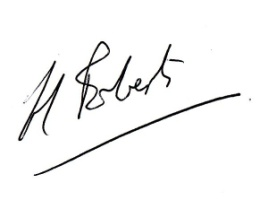 H Roberts